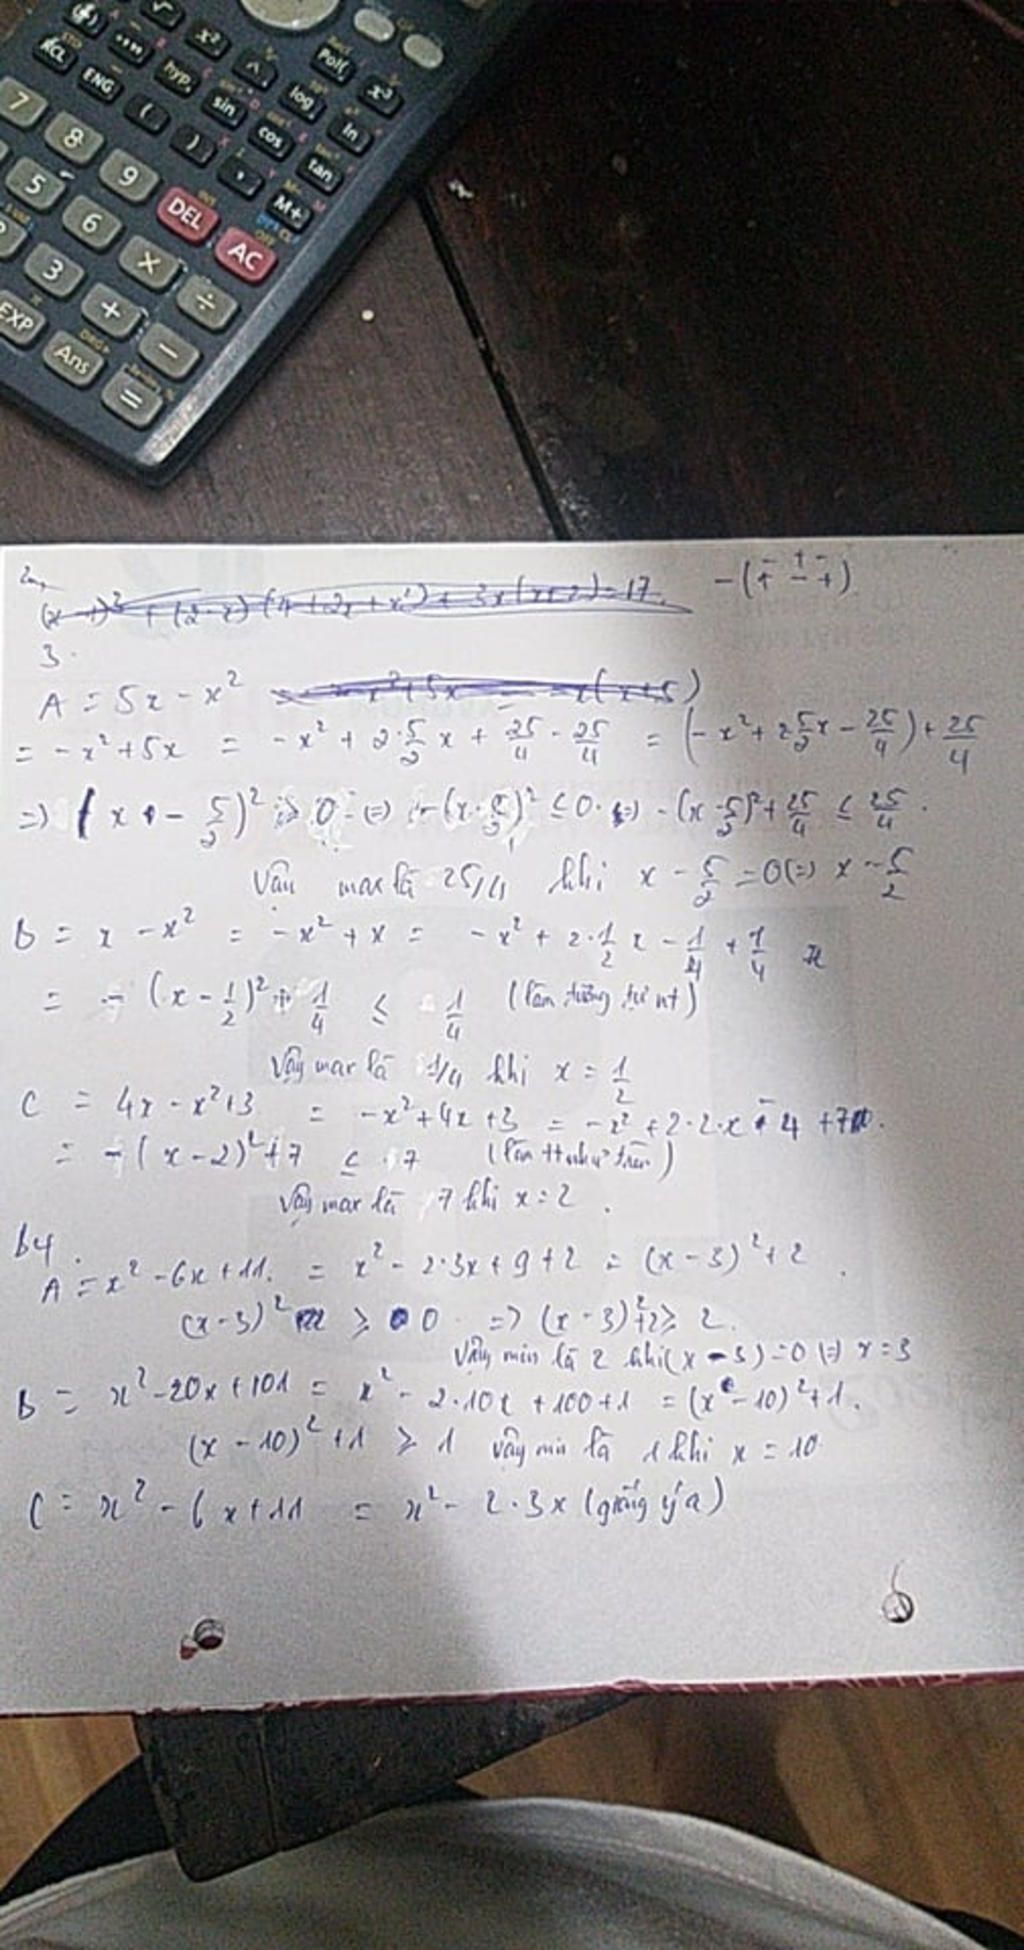 x²
^
Pol(
x³
RCL
ENG
hyp
sin
log
(
)
cos
ln
,
tan
7
8
9
DEL
M+
5
6
×
AC
3
+
÷
EXP
Ans
−
=
(x-1)³ + (2-x)(4+2x+x²) + 3x(x+2) = 17.
3.
A = 5x - x²
= -x² + 5x = -x² + 2·5/2 x + 25/4 - 25/4 = (-x² + 2 5/2 x - 25/4) + 25/4
=> (x - 5/2)² ≥ 0 (=) -(x - 5/2)² ≤ 0. (=) -(x - 5/2)² + 25/4 ≤ 25/4.
Vậy max là 25/4 khi x - 5/2 = 0 (=) x = 5/2
B = x - x² = -x² + x = -x² + 2·1/2 x - 1/4 + 1/4
= -(x - 1/2)² + 1/4 ≤ 1/4 (làm tương tự nt)
Vậy max là 1/4 khi x = 1/2
C = 4x - x² + 3 = -x² + 4x + 3 = -x² + 2·2·x - 4 + 7.
= -(x-2)² + 7 ≤ 7 (làm như trên)
Vậy max là 7 khi x = 2.
b4.
A = x² - 6x + 11. = x² - 2·3x + 9 + 2 = (x-3)² + 2.
(x-3)² ≥ 0 => (x-3)² + 2 ≥ 2.
Vậy min là 2 khi (x-3) = 0 (=) x = 3
B = x² - 20x + 101 = x² - 2·10x + 100 + 1 = (x - 10)² + 1.
(x-10)² + 1 ≥ 1 Vậy min là 1 khi x = 10
C = x² - 6x + 11 = x² - 2·3x (giống ý a)